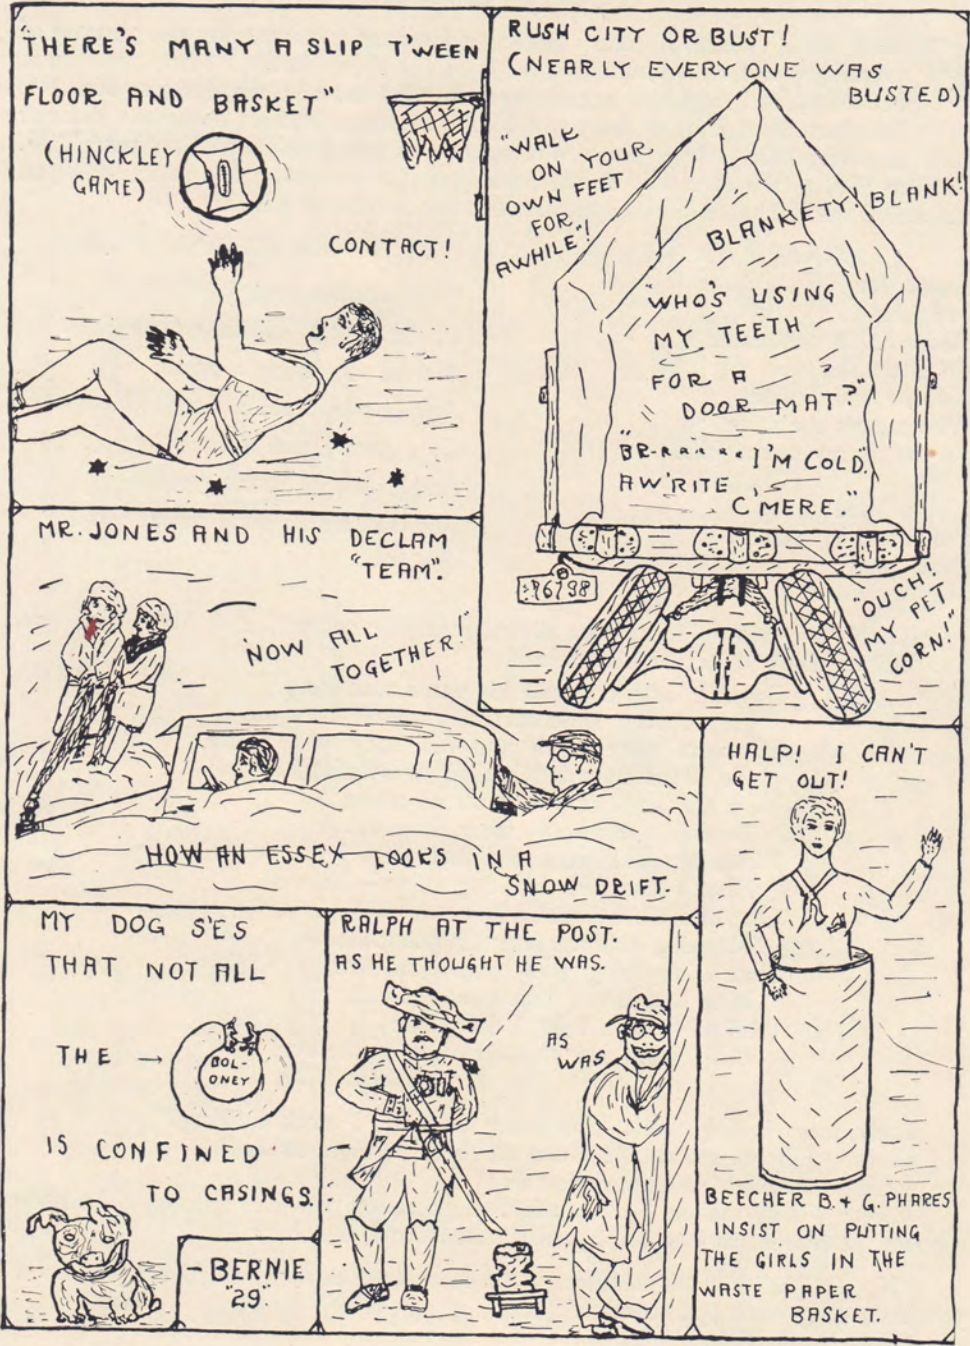 "THERE'S MANY A SLIP T'WEEN
FLOOR AND BASKET"
(HINCKLEY
GAME)
CONTACT!
RUSH CITY OR BUST!
(NEARLY EVERY ONE WAS
BUSTED)
"WALK
ON YOUR
OWN FEET
FOR
AWHILE"!
BLANKETY! BLANK!
"WHO'S USING
MY TEETH
FOR A
DOOR MAT?"
"BR-R R R R I'M COLD".
AW'RITE
C'MERE."
P6798
"OUCH!
MY PET
CORN!"
MR. JONES AND HIS DECLAM
"TEAM".
"NOW ALL
TOGETHER!"
HOW AN ESSEX LOOKS IN A
SNOW DRIFT.
HALP! I CAN'T
GET OUT!
BEECHER B. + G. PHARES
INSIST ON PUTTING
THE GIRLS IN THE
WASTE PAPER
BASKET.
MY DOG S'ES
THAT NOT ALL
THE →
BOL-
ONEY
IS CONFINED
TO CASINGS.
- BERNIE
"29".
RALPH AT THE POST.
AS HE THOUGHT HE WAS.
AS
WAS